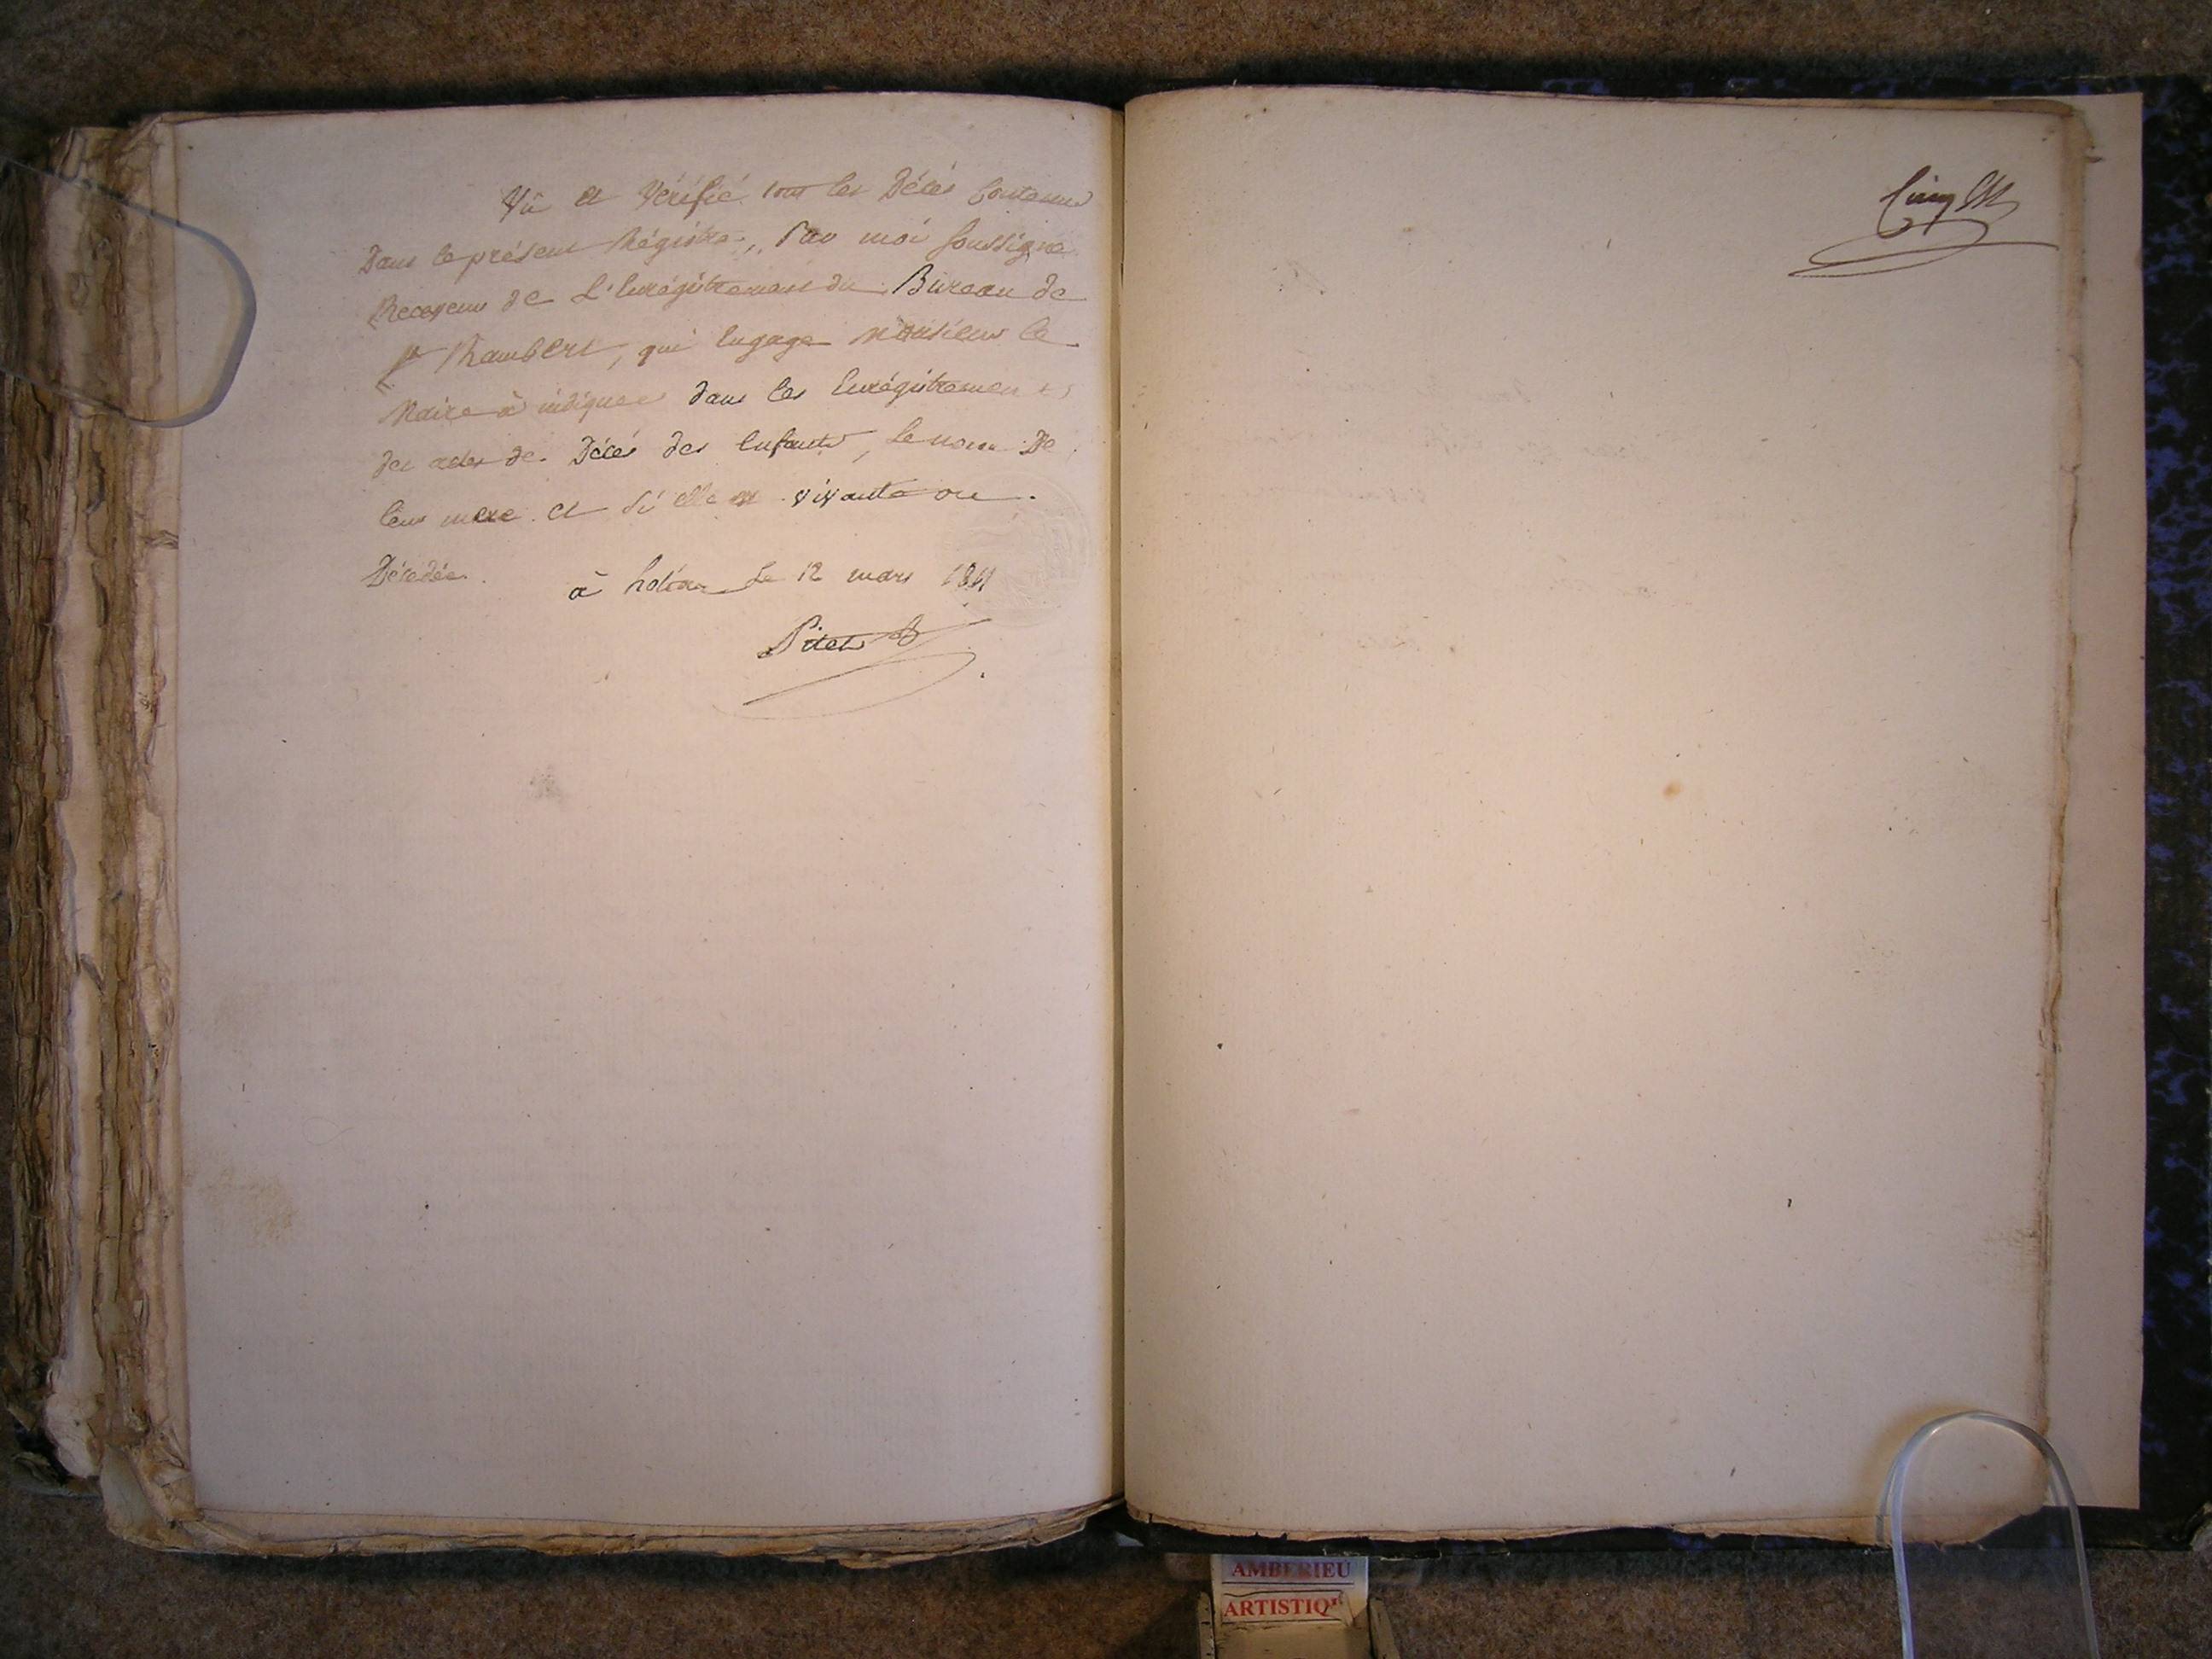 Vû et Vérifié tous les Décés Contenus
Dans le présent Régistre, Par moi soussigné
Receveur de L'Enrégistrement du Bureau de
St Rambert, qui Engage Monsieur le
Maire à indiquer dans les Enrégistrements
des actes de Décés des Enfants, le nom De
leur mere et si elle est vivante ou
Décédée.
à le 12 mars 1811
Pitet
AMBERIEU
ARTISTIQ